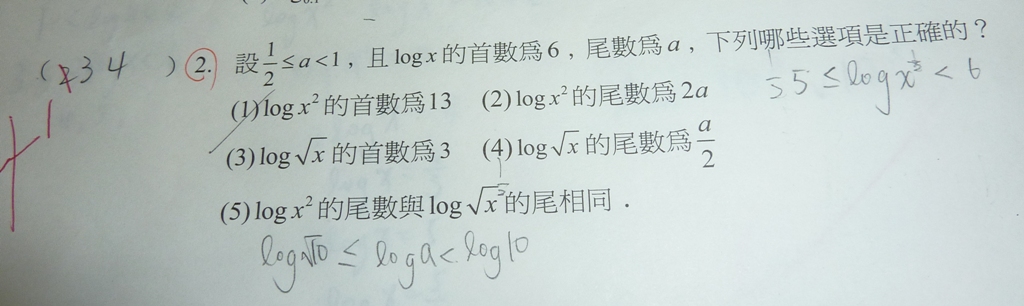 ( 234 ) 2. 設 1/2 ≤ a < 1，且 log x 的首數為 6，尾數為 a，下列哪些選項是正確的？
(1) log x² 的首數為 13 (2) log x² 的尾數為 2a
5 ≤ log x < 6
(3) log √x 的首數為 3 (4) log √x 的尾數為 a/2
(5) log x² 的尾數與 log √x⁵ 的尾相同．
log √10 ≤ log a < log 10